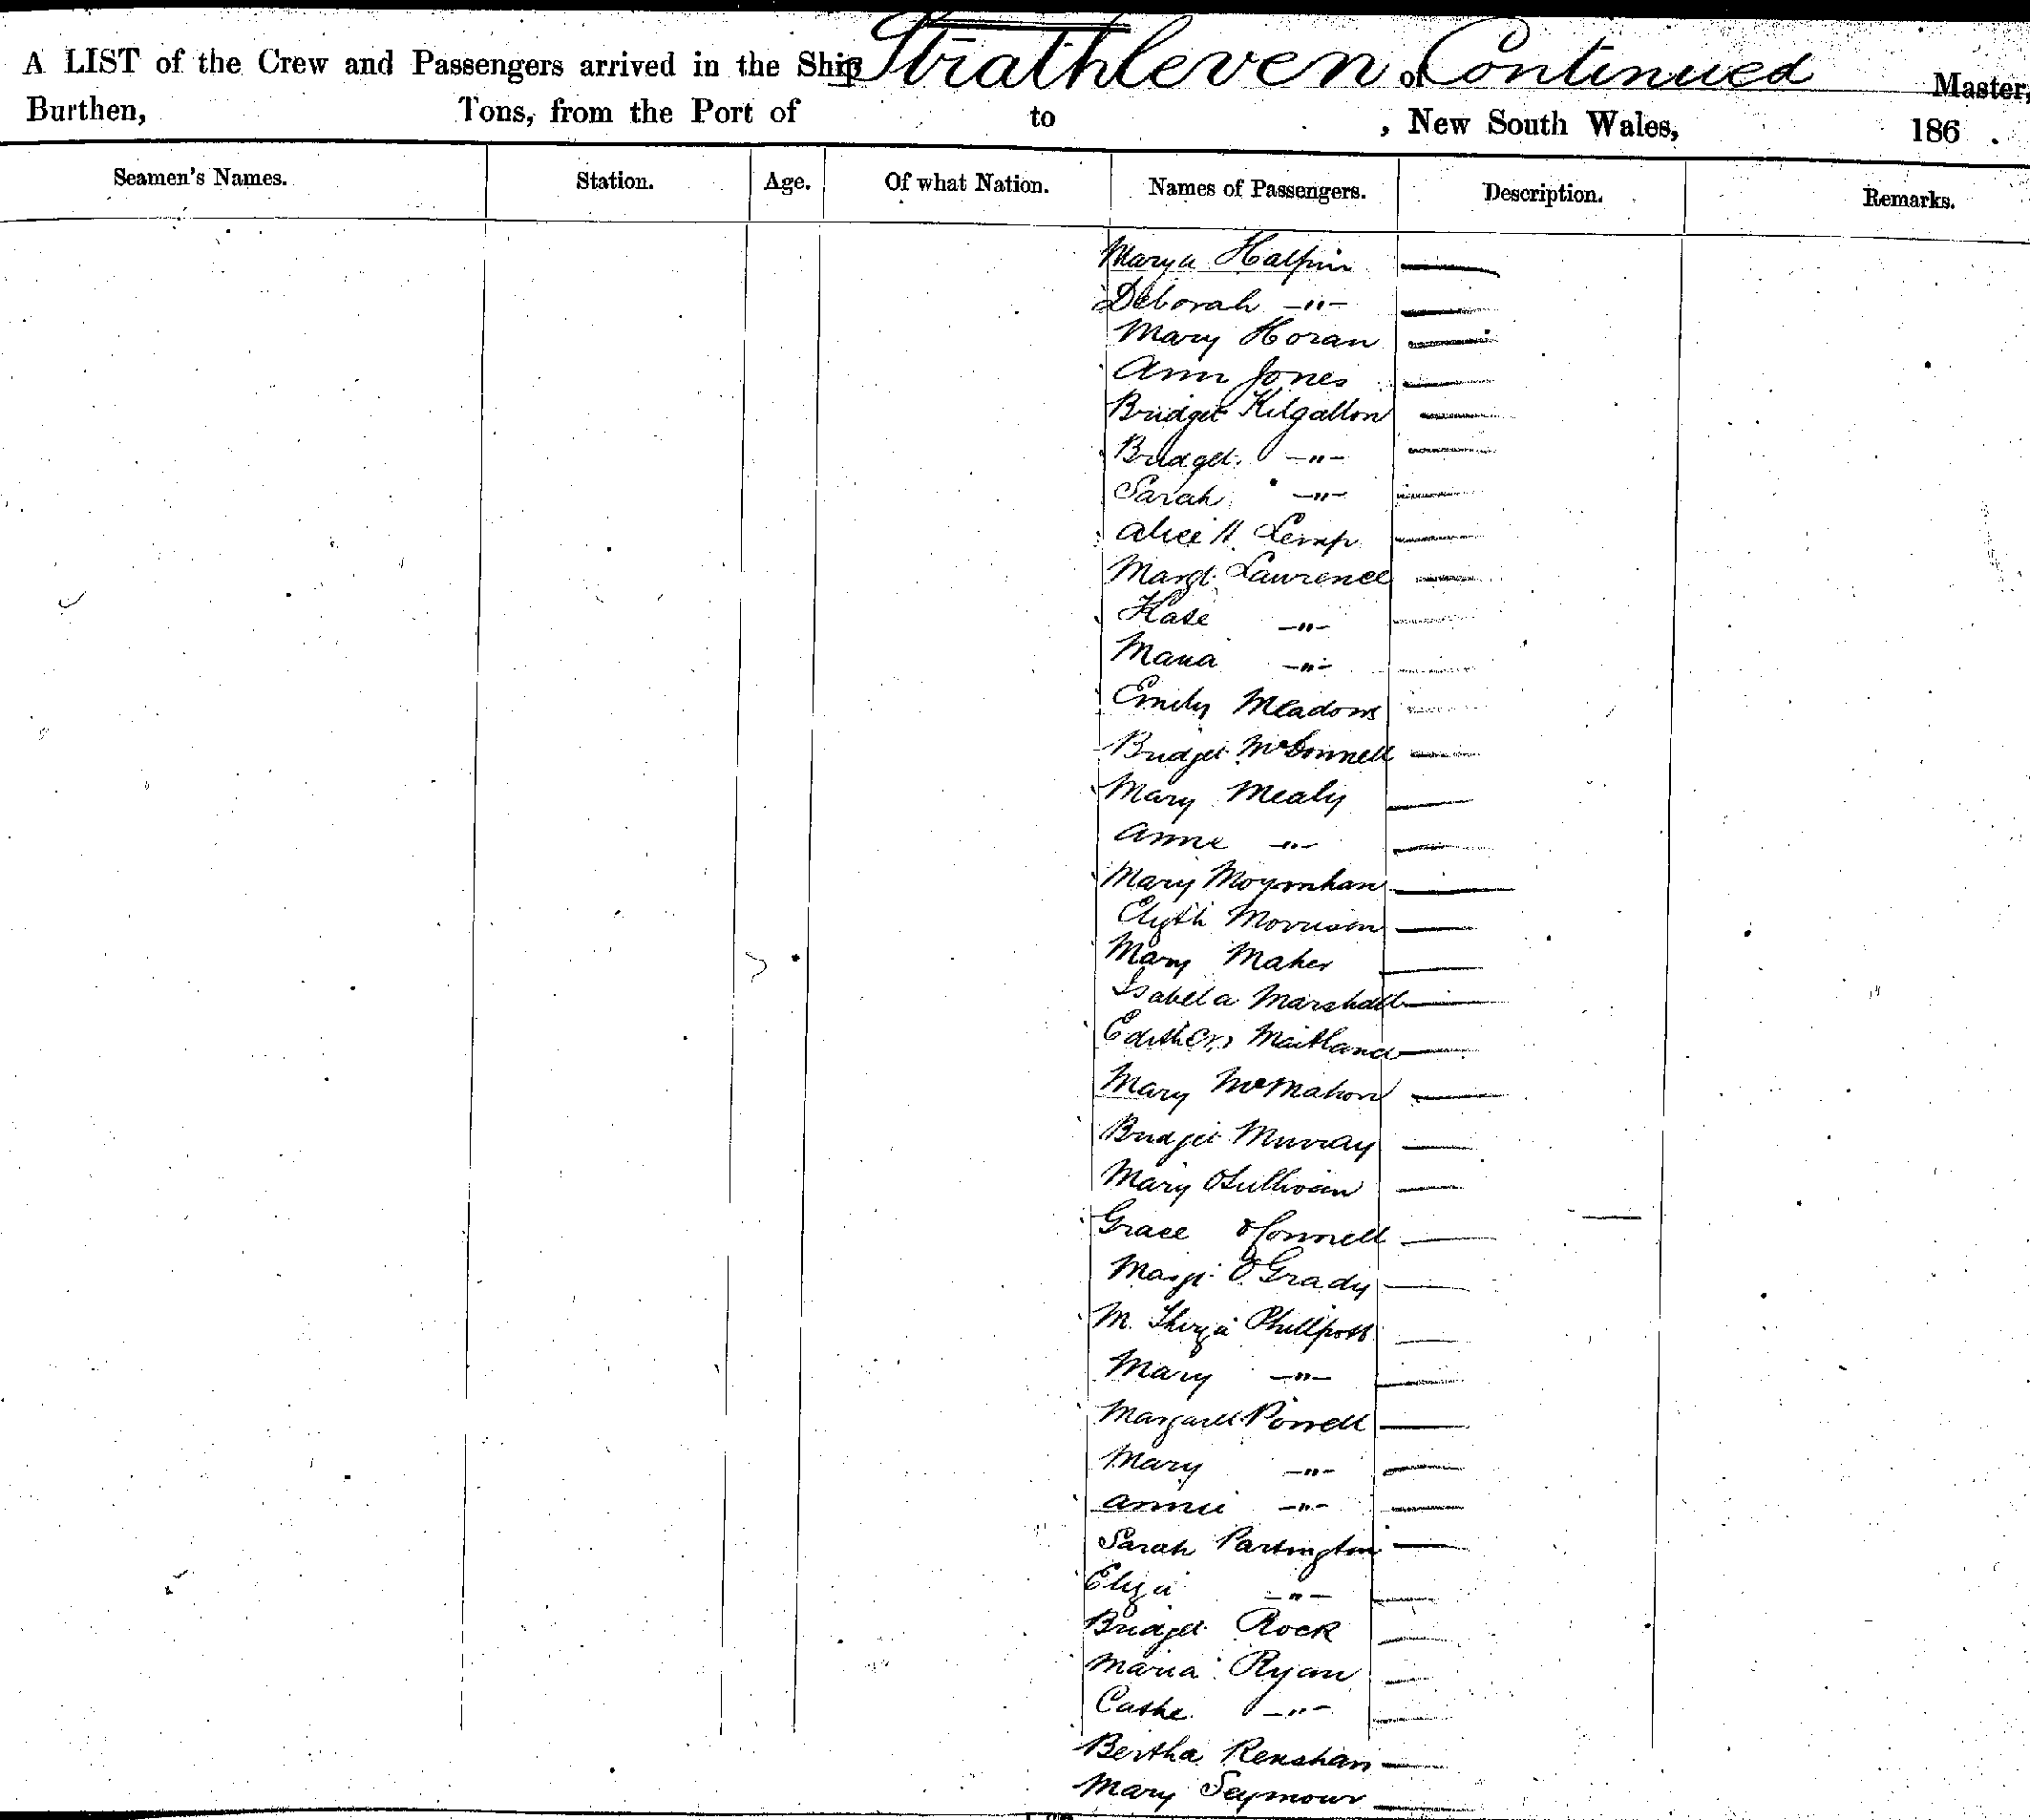 A LIST of the Crew and Passengers arrived in the Ship Strathleven of Continued Master,
Burthen, Tons, from the Port of to , New South Wales, 186 .
Seamen's Names. Station. Age. Of what Nation. Names of Passengers. Description. Remarks.
Mary a Halpin —
Deborah —"— —
Mary Horan —
Ann Jones —
Bridget Kilgallon —
Bridget —"— —
Sarah —"— —
Alice H. Kemp —
Margt. Lawrence —
Kate —"— —
Maria —"— —
Emily Meadows —
Bridget McDonnell —
Mary Mealy —
Anne —"— —
Mary Moyonhan —
Elizth Morrison —
Mary Maher —
Isabella Marshall —
Edith Maitland —
Mary McMahon —
Bridget Murray —
Mary OSullivan —
Grace OConnell —
Margt. O'Grady —
M. Thirza Phillpott —
Mary —"— —
Margaret Powell —
Mary —"— —
Annie —"— —
Sarah Partington —
Eliza —"— —
Bridget Rock —
Maria Ryan —
Cathe —"— —
Bertha Renshaw —
Mary Seymour —